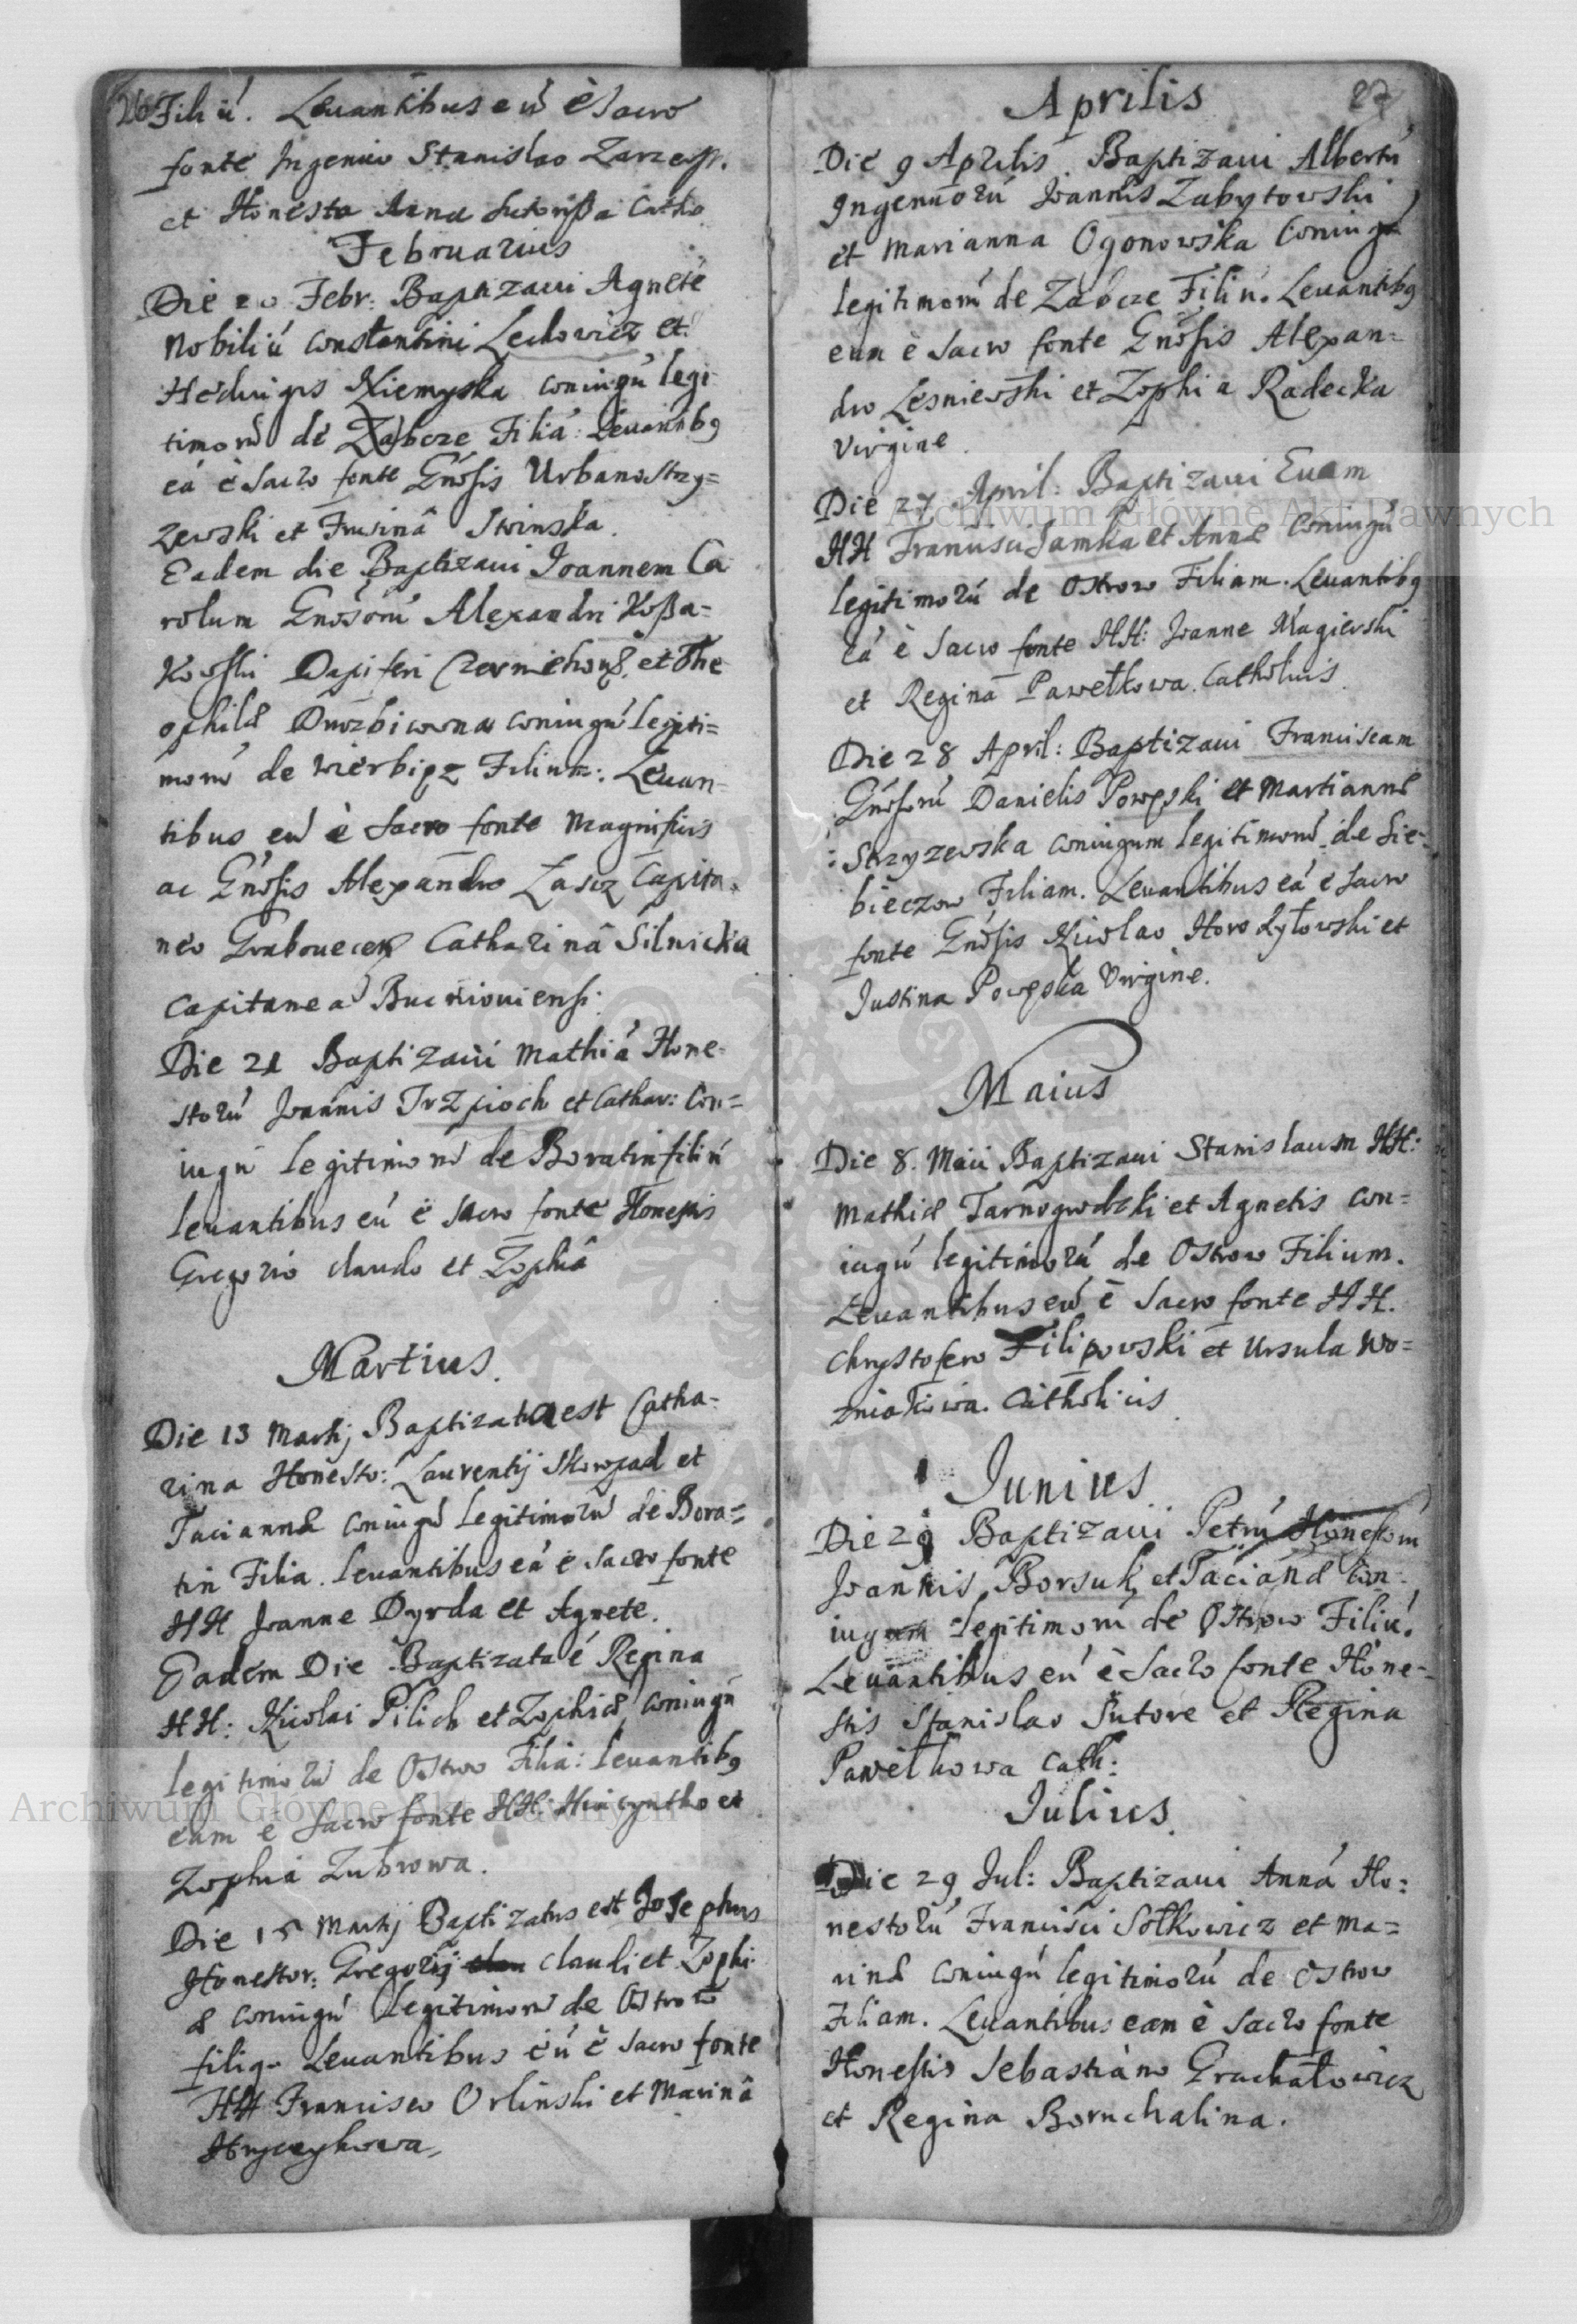 26 Filiú. Leuantibus eú è Sacro
fonte Ingenuo Stanislao
et Honesta Anna Catho
Februarius
Die 20 Febr: Baptizaui Agneté
Nobiliú Constantini Lechowicz et
Heduigis Niemyska coniugú legi
timorú de Zabcze Filiá: Leuantibg
eá è Sacro fonte Gnosis Urbano Strzy=
zewski et Swinska.
Eadem die Baptizaui Joannem Ca
rolum Gnosorú Alexandri Koßa=
kowski Dapiferi et The
ophilæ coniugú legiti=
morú de Wierbięz Filium: Leuan
tibus eú è Sacro fonte Magnificis
ac Gnosis Alexandro Łascz Capita
neo Catharinâ Silnicka
Capitanea
Die 21 Baptizaui Mathiá Hone=
storú Joannis Trzpioch et Cathar: Con=
iugú legitimorú de Boratin filiú
leuantibus eú è sacro fonte Honestis
Gregorio claudo et Zophiâ
Martius.
Die 13 Martij Baptizata est Catha=
rina Honesto: Laurentij Skowpad et
Taciannæ coniugú legitimorú de Bora=
tin Filia. leuantibus eá è sacro fonte
HH Joanne Dyrda et Agnete.
Eadem Die Baptizata é Regina
HH: Nicolai Pilich et Zophiæ coniugú
legitimorú de Ostrow Filia: leuantibg
eam è Sacro fonte HH: Hiacyntho et
Zophia Zubrowa.
Die 15 Martij Baptizatus est Josephus
Honestor: Gregorij claudi et Zophi
æ coniugú legitimorú de Ostrow
filiq leuantibus eú è sacro fonte
HH Francisco Orlinski et Marinâ
Hrycykowa
Aprilis 27
Die 9 Aprilis Baptizaui Albertú
Ingenuorú Joannis Zabytowski
et Marianna Ogonowska Coniugú
legitimorú de Zabcze Filiú. Leuantibg
eun è Sacro fonte Gnosis Alexan=
dro Lesniewski et Zophia Radecka
Virgine.
Die 27 April: Baptizaui Euam
HH Francisci Jamka et Annæ Coniugú
legitimorú de Ostrow Filiam. Leuantibg
eá è Sacro fonte HH: Joanne Magierski
et Reginâ Pawełkowa. Catholicis.
Die 28 April: Baptizaui Franciscam
Gnosorú Danielis Powęski et Martiannæ
Strzyzewska coniugum legitimorú de Sie=
bieczow Filiam. Leuantibus eá è sacro
fonte Gnosis Nicolao Horodyłowski et
Justina Powęska Virgine.
Maius
Die 8. Maii Baptizaui Stanislaum HH:
Mathiæ Tarnogrodzki et Agnetis con=
iugú legitimorú de Ostrow Filium.
Leuantibus eú è Sacro fonte HH.
Chrystofero Filipowski et Ursula Wo=
zniakowa. Catholicis.
Junius
Die 29 Baptizaui Petrú Honestorú
Joannis Borsuk et Tacianæ Con=
iugum legitimorú de Ostrow Filiú.
Leuantibus eú è Sacro fonte Hone=
stis Stanislao Sutore et Regina
Pawełkowa Cath:
Julius.
Die 29 Jul: Baptizaui Anná Ho:
nestorú Francisci Sołkowicz et Ma=
rinæ coniugú legitimorú de Ostrow
Filiam. Leuantibus eam è Sacro fonte
Honestis Sebastiano Gruchałowicz
et Regina Boruchalina.
Archiwum Główne Akt Dawnych
Archiwum Główne Akt Dawnych